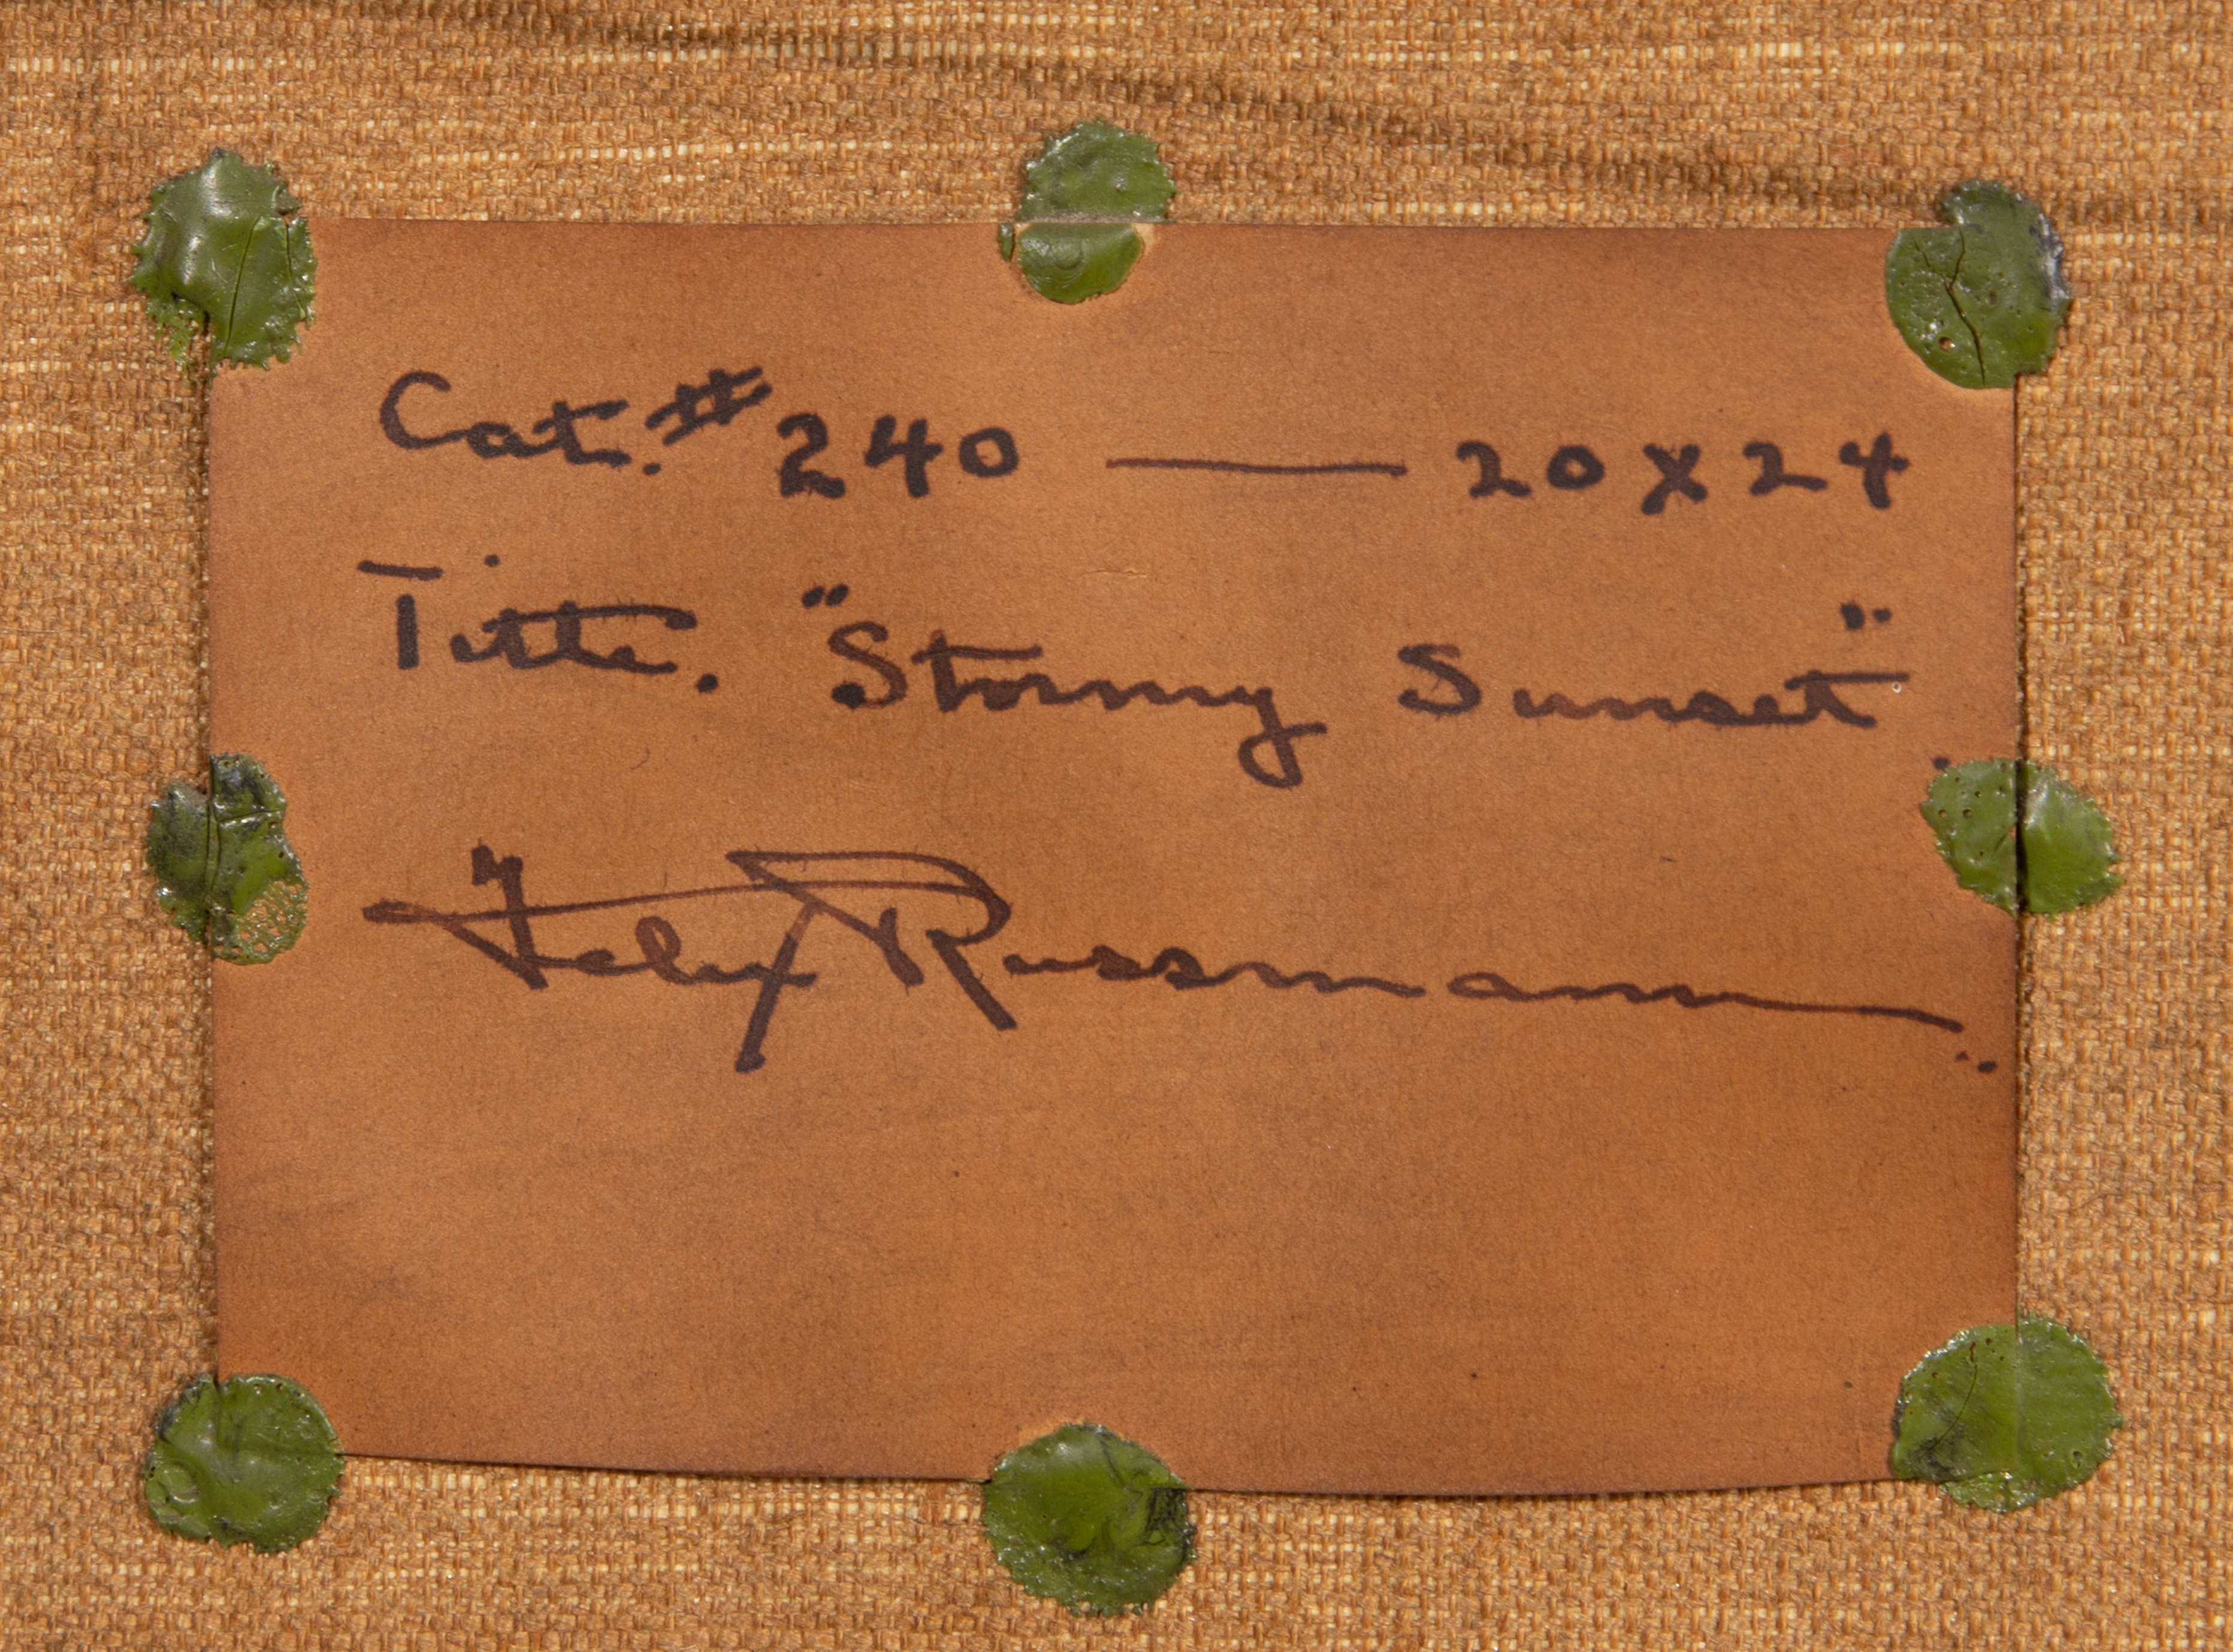 Cat. # 240 — 20 x 24
Title. "Stormy Sunset"
Felix Russmann